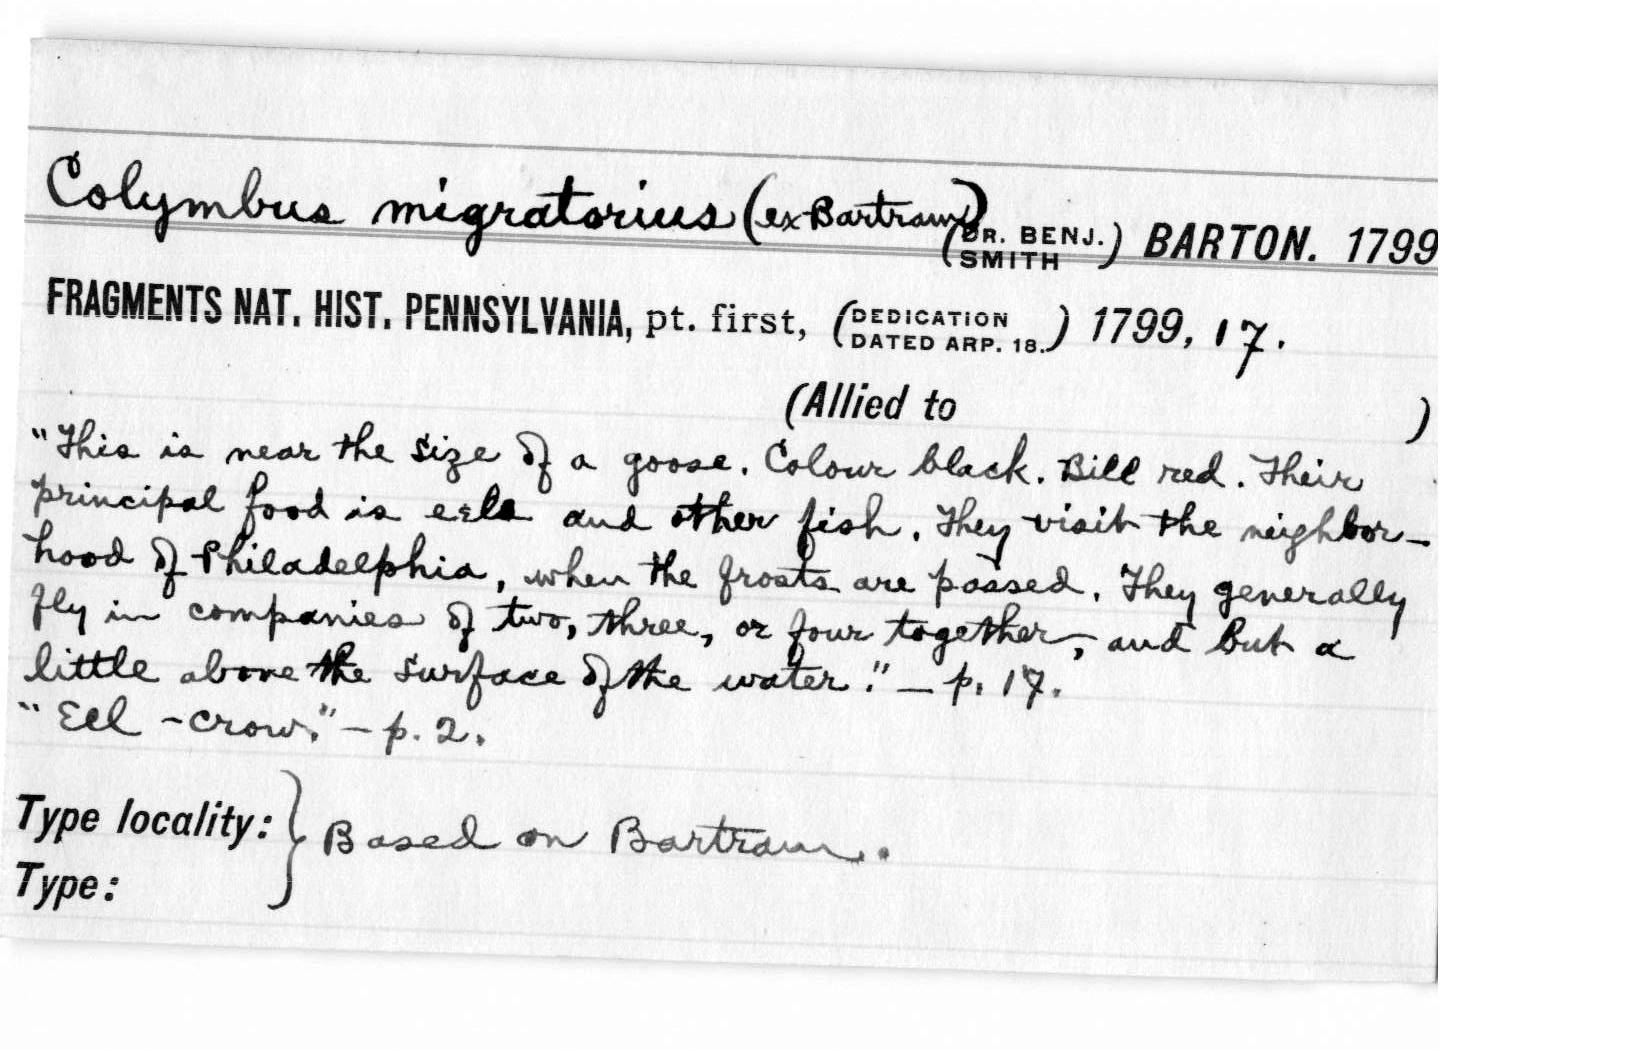 Colymbus migratorius (ex Bartram) (DR. BENJ. SMITH) BARTON. 1799
FRAGMENTS NAT. HIST. PENNSYLVANIA, pt. first, (DEDICATION DATED ARP. 18.) 1799, 17.
(Allied to )
"This is near the size of a goose. Colour black. Bill red. Their
principal food is eels and other fish. They visit the neighbor-
hood of Philadelphia, when the frosts are passed. They generally
fly in companies of two, three, or four together, and but a
little above the surface of the water." — p. 17.
"Eel-crow." — p. 2.
Type locality: } Based on Bartram.
Type: